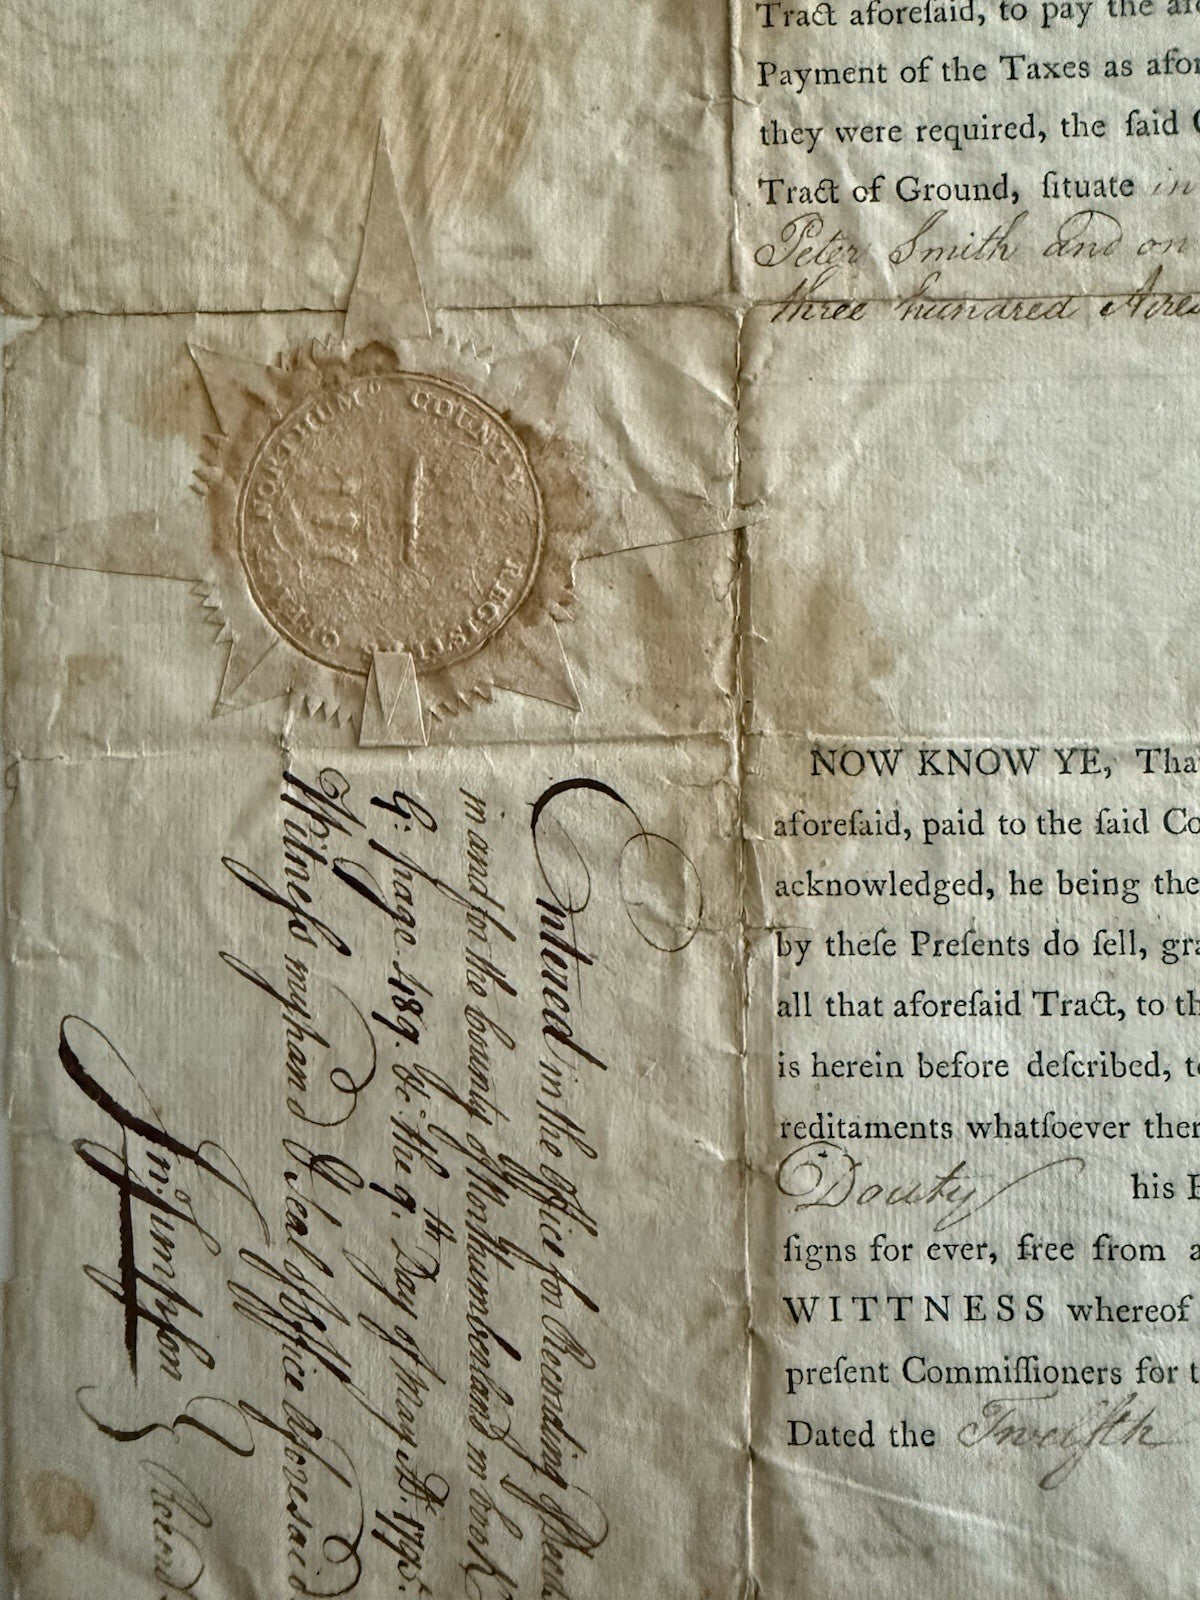 Tract aforeſaid, to pay the
Payment of the Taxes as
they were required, the ſaid
Tract of Ground, ſituate in
Peter Smith and on
three hundred Acres
NOW KNOW YE, Tha
aforeſaid, paid to the ſaid Co
acknowledged, he being the
by theſe Preſents do ſell, gra
all that aforeſaid Tract, to th
is herein before deſcribed, t
reditaments whatſoever ther
Douty his
ſigns for ever, free from a
WITTNESS whereof
preſent Commiſſioners for t
Dated the Twelfth
NORTHUMD COUNTY
REGISTER OFFICE
Entered in the Office for Recording
in and for the County of Northumberland in book
G. page 489. &c. the 9th Day of May AD. 1795.
Witneſs my hand & Seal of Office Aforesaid
Jn. Simpson